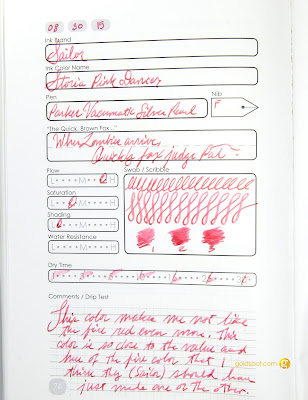 08 30 15
Ink Brand
Sailor
Ink Color Name
Storia Pink Dancer
Pen
Nib
Parker Vacumatic Silver Pearl
F
"The Quick, Brown Fox..."
When Zombies arrive,
Quickly fax judge Pat~
Flow
L M H
Swab / Scribble
Saturation
L M H
Shading
L M H
Water Resistance
L M H
1 2 3
Dry Time
Comments / Drip Test
This color makes me not like
the fire red even more. This
color is so close to the value and
hue of the fire color that I
think they (Sailor) should have
just made one or the other.
goldspot.com